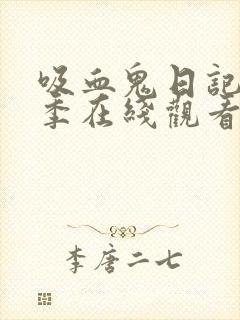 吸血鬼日記
季在綫觀看
李唐二七